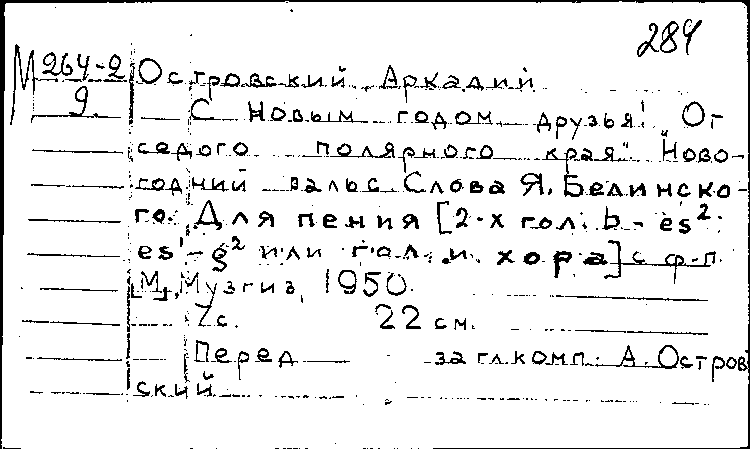 284
М 264-2
9.
Островский Аркадий
С Новым годом, друзья! „От
седого полярного края". Ново-
годний вальс. Слова Я. Белинско-
го. Для пения [2-х гол. b - es²;
es¹ - g² или гол. и хора] с ф-п.
[М], Музгиз, 1950.
7с. 22 см.
Перед загл. комп. А. Остров
ский